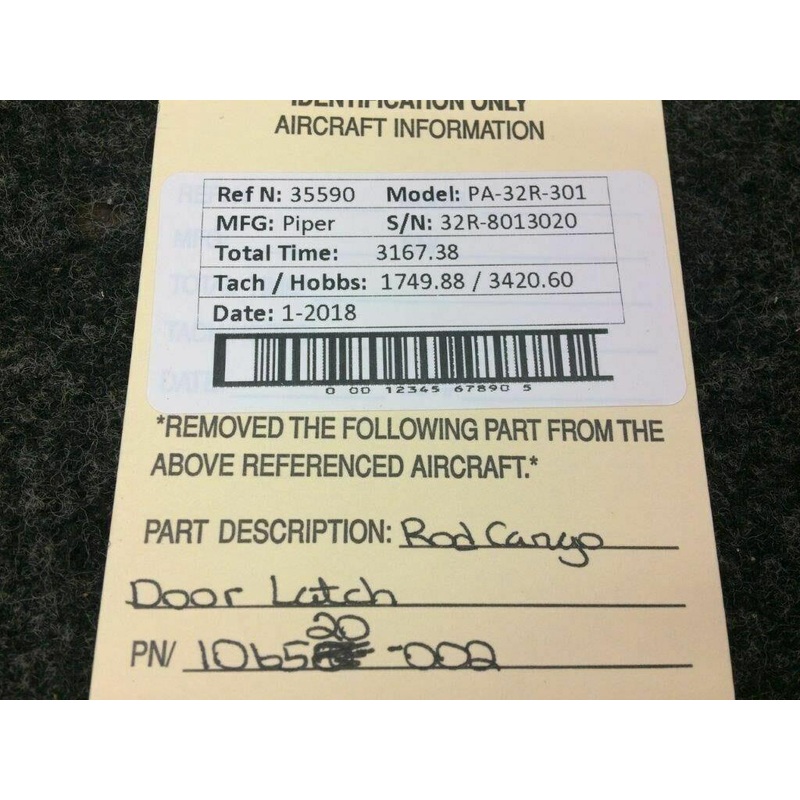 IDENTIFICATION ONLY
AIRCRAFT INFORMATION
Ref N: 35590 Model: PA-32R-301
MFG: Piper S/N: 32R-8013020
Total Time: 3167.38
Tach / Hobbs: 1749.88 / 3420.60
Date: 1-2018
0 00 12345 67890 5
*REMOVED THE FOLLOWING PART FROM THE
ABOVE REFERENCED AIRCRAFT.*
PART DESCRIPTION: Rod Cargo
Door Latch
20
PN/ 1065 -002